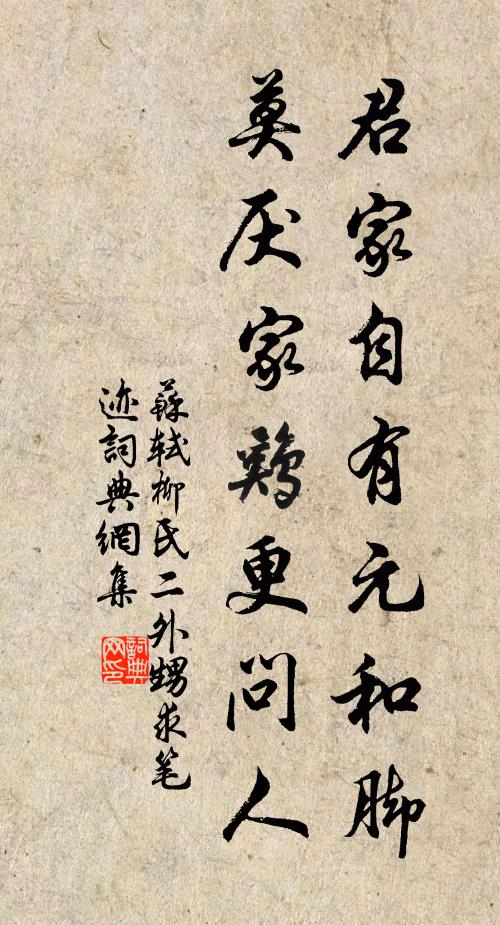 君家自有元和脚
莫厌家鷄更问人
蘇轼柳氏二外甥求笔
迹詞典網集
詞典网印